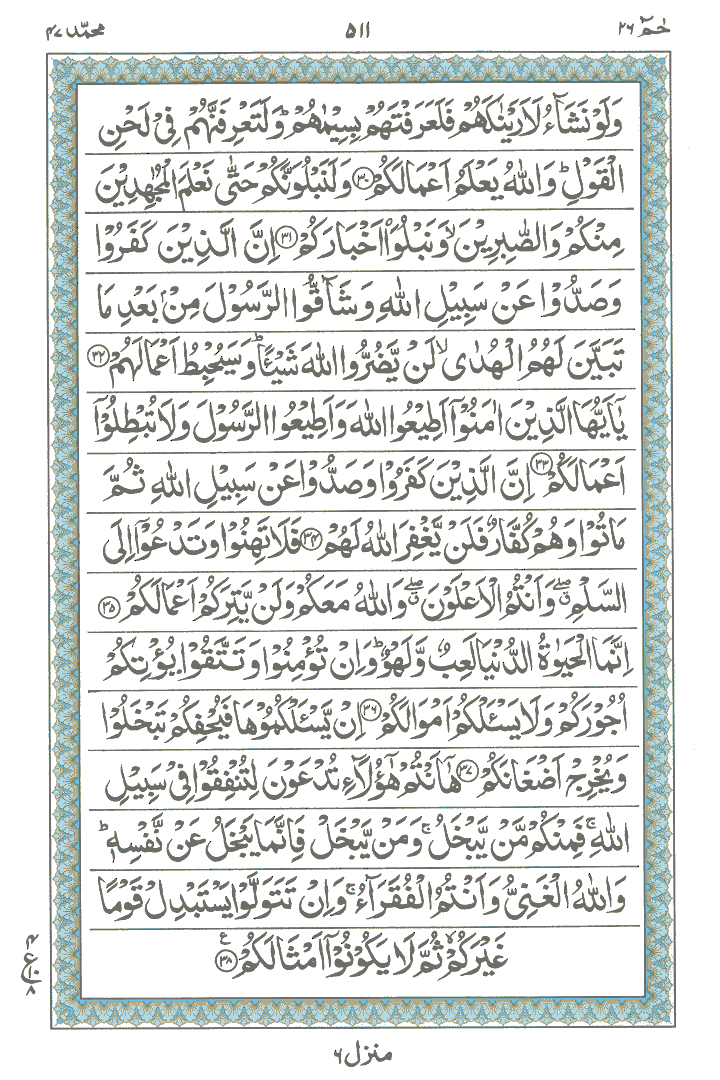 حٰمٓ ٢٦
٥١١
محمّد ٤٧
وَلَوْ نَشَآءُ لَاَرَيْنٰكَهُمْ فَلَعَرَفْتَهُمْ بِسِيْمٰهُمْ ؕ وَلَتَعْرِفَنَّهُمْ فِىْ لَحْنِ
الْقَوْلِ ؕ وَاللّٰهُ يَعْلَمُ اَعْمَالَكُمْ ﴿٣٠﴾ وَلَنَبْلُوَنَّكُمْ حَتّٰى نَعْلَمَ الْمُجٰهِدِيْنَ
مِنْكُمْ وَالصّٰبِرِيْنَ ۙ وَنَبْلُوَا۟ اَخْبَارَكُمْ ﴿٣١﴾ اِنَّ الَّذِيْنَ كَفَرُوْا
وَصَدُّوْا عَنْ سَبِيْلِ اللّٰهِ وَشَآقُّوا الرَّسُوْلَ مِنْۢ بَعْدِ مَا
تَبَيَّنَ لَهُمُ الْهُدٰى ۙ لَنْ يَّضُرُّوا اللّٰهَ شَيْـًٔا ؕ وَسَيُحْبِطُ اَعْمَالَهُمْ ﴿٣٢﴾
يٰۤاَيُّهَا الَّذِيْنَ اٰمَنُوْۤا اَطِيْعُوا اللّٰهَ وَاَطِيْعُوا الرَّسُوْلَ وَلَا تُبْطِلُوْۤا
اَعْمَالَكُمْ ﴿٣٣﴾ اِنَّ الَّذِيْنَ كَفَرُوْا وَصَدُّوْا عَنْ سَبِيْلِ اللّٰهِ ثُمَّ
مَاتُوْا وَهُمْ كُفَّارٌ فَلَنْ يَّغْفِرَ اللّٰهُ لَهُمْ ﴿٣٤﴾ فَلَا تَهِنُوْا وَتَدْعُوْۤا اِلَى
السَّلْمِ ۖۗ وَاَنْتُمُ الْاَعْلَوْنَ ۖۗ وَاللّٰهُ مَعَكُمْ وَلَنْ يَّتِرَكُمْ اَعْمَالَكُمْ ﴿٣٥﴾
اِنَّمَا الْحَيٰوةُ الدُّنْيَا لَعِبٌ وَّلَهْوٌ ؕ وَاِنْ تُؤْمِنُوْا وَتَتَّقُوْا يُؤْتِكُمْ
اُجُوْرَكُمْ وَلَا يَسْـَٔلْكُمْ اَمْوَالَكُمْ ﴿٣٦﴾ اِنْ يَّسْـَٔلْكُمُوْهَا فَيُحْفِكُمْ تَبْخَلُوْا
وَيُخْرِجْ اَضْغَانَكُمْ ﴿٣٧﴾ هٰۤاَنْتُمْ هٰٓؤُلَآءِ تُدْعَوْنَ لِتُنْفِقُوْا فِىْ سَبِيْلِ
اللّٰهِ ۚ فَمِنْكُمْ مَّنْ يَّبْخَلُ ۚ وَمَنْ يَّبْخَلْ فَاِنَّمَا يَبْخَلُ عَنْ نَّفْسِهٖ ؕ
وَاللّٰهُ الْغَنِىُّ وَاَنْتُمُ الْفُقَرَآءُ ۚ وَاِنْ تَتَوَلَّوْا يَسْتَبْدِلْ قَوْمًا
غَيْرَكُمْ ۙ ثُمَّ لَا يَكُوْنُوْۤا اَمْثَالَكُمْ ﴿٣٨﴾ ع
٤
ع ١٠
٨
منزل ٦